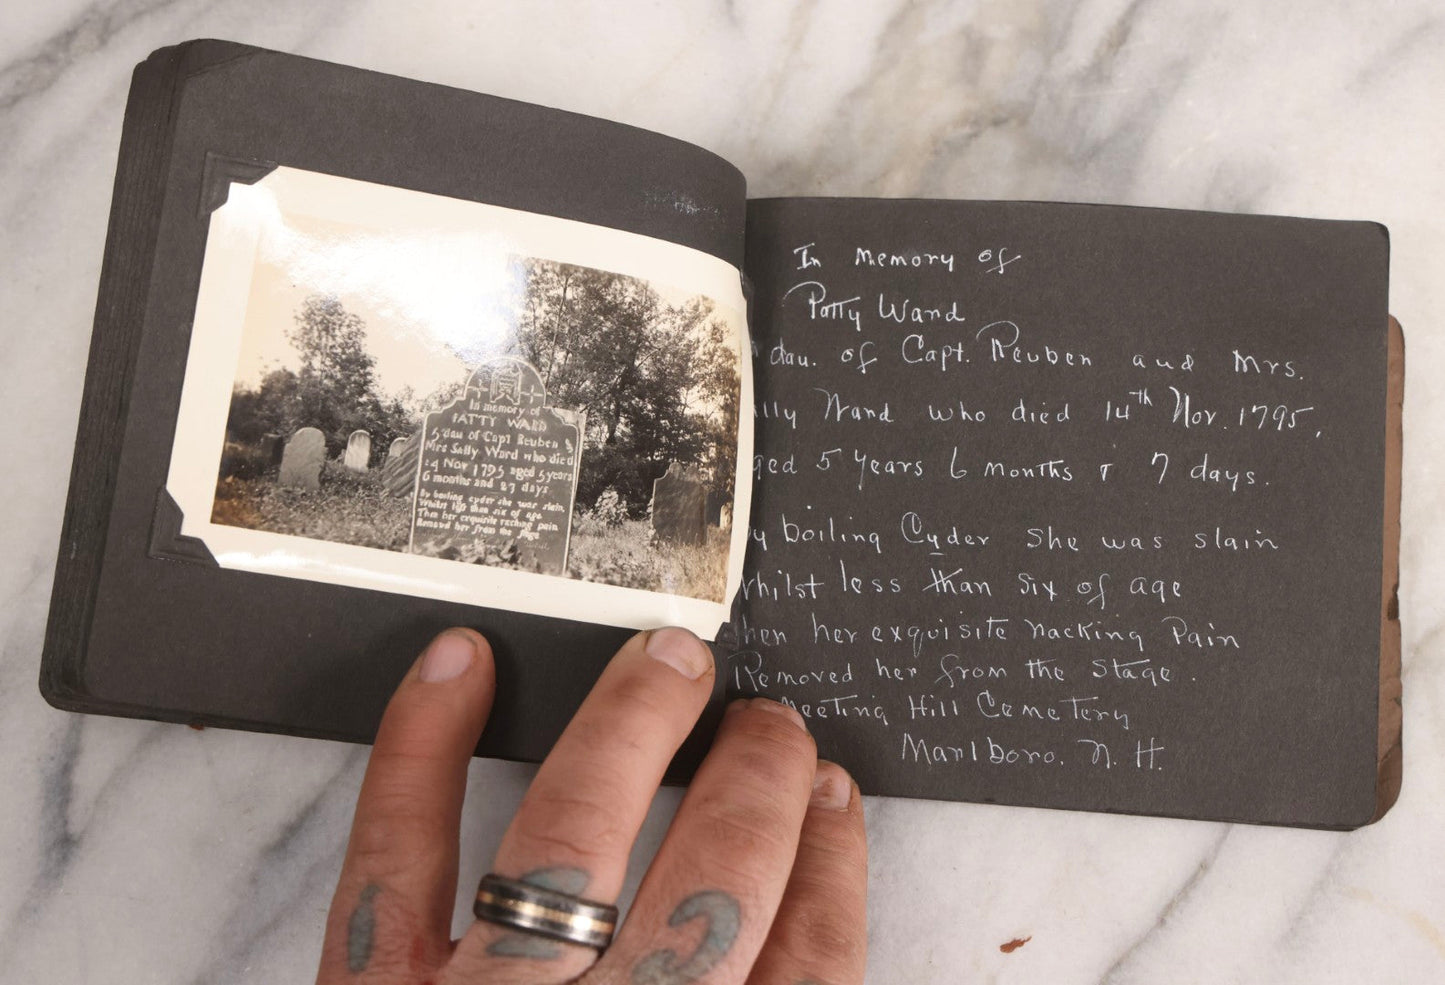 In memory of
PATTY WARD
dau of Capt Reuben &
Mrs Sally Ward who died
14 Nov 1795 aged 5 years
6 months and 27 days
By boiling cyder she was slain,
Whilst less than six of age
Then her exquisite racking pain
Remov'd her from the stage
In memory of
Patty Ward
dau. of Capt. Reuben and Mrs.
lly Ward who died 14th Nov. 1795,
ged 5 years 6 months & 7 days.
y boiling Cyder she was slain
Whilst less than six of age
hen her exquisite racking Pain
Removed her from the stage.
Meeting Hill Cemetery
Marlboro. N. H.